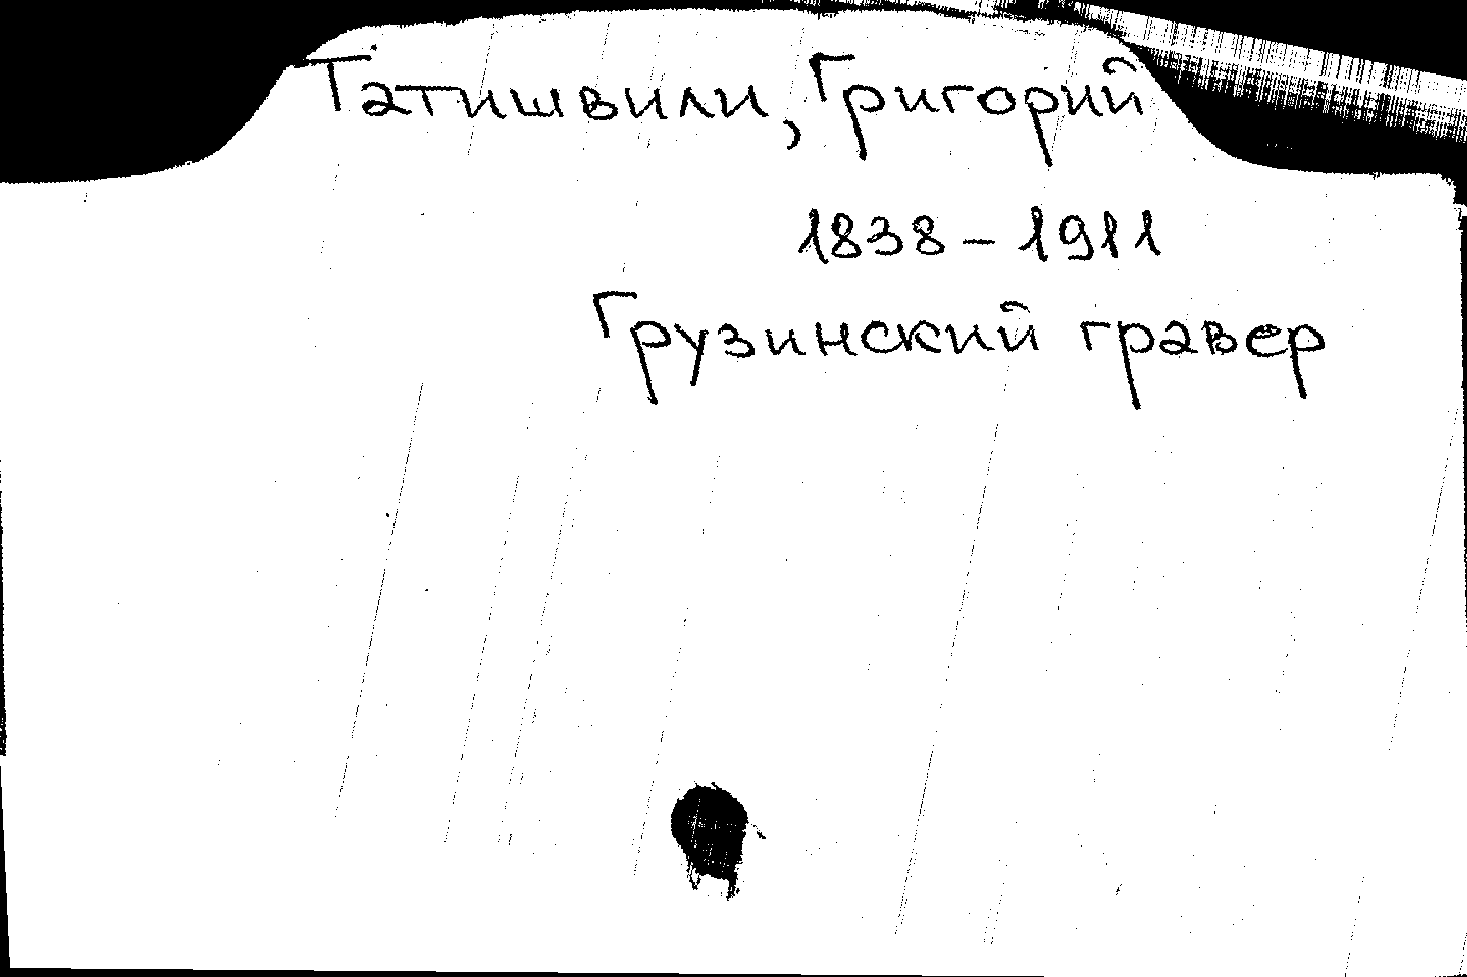 Татишвили, Григорий
1838-1911
Грузинский гравер